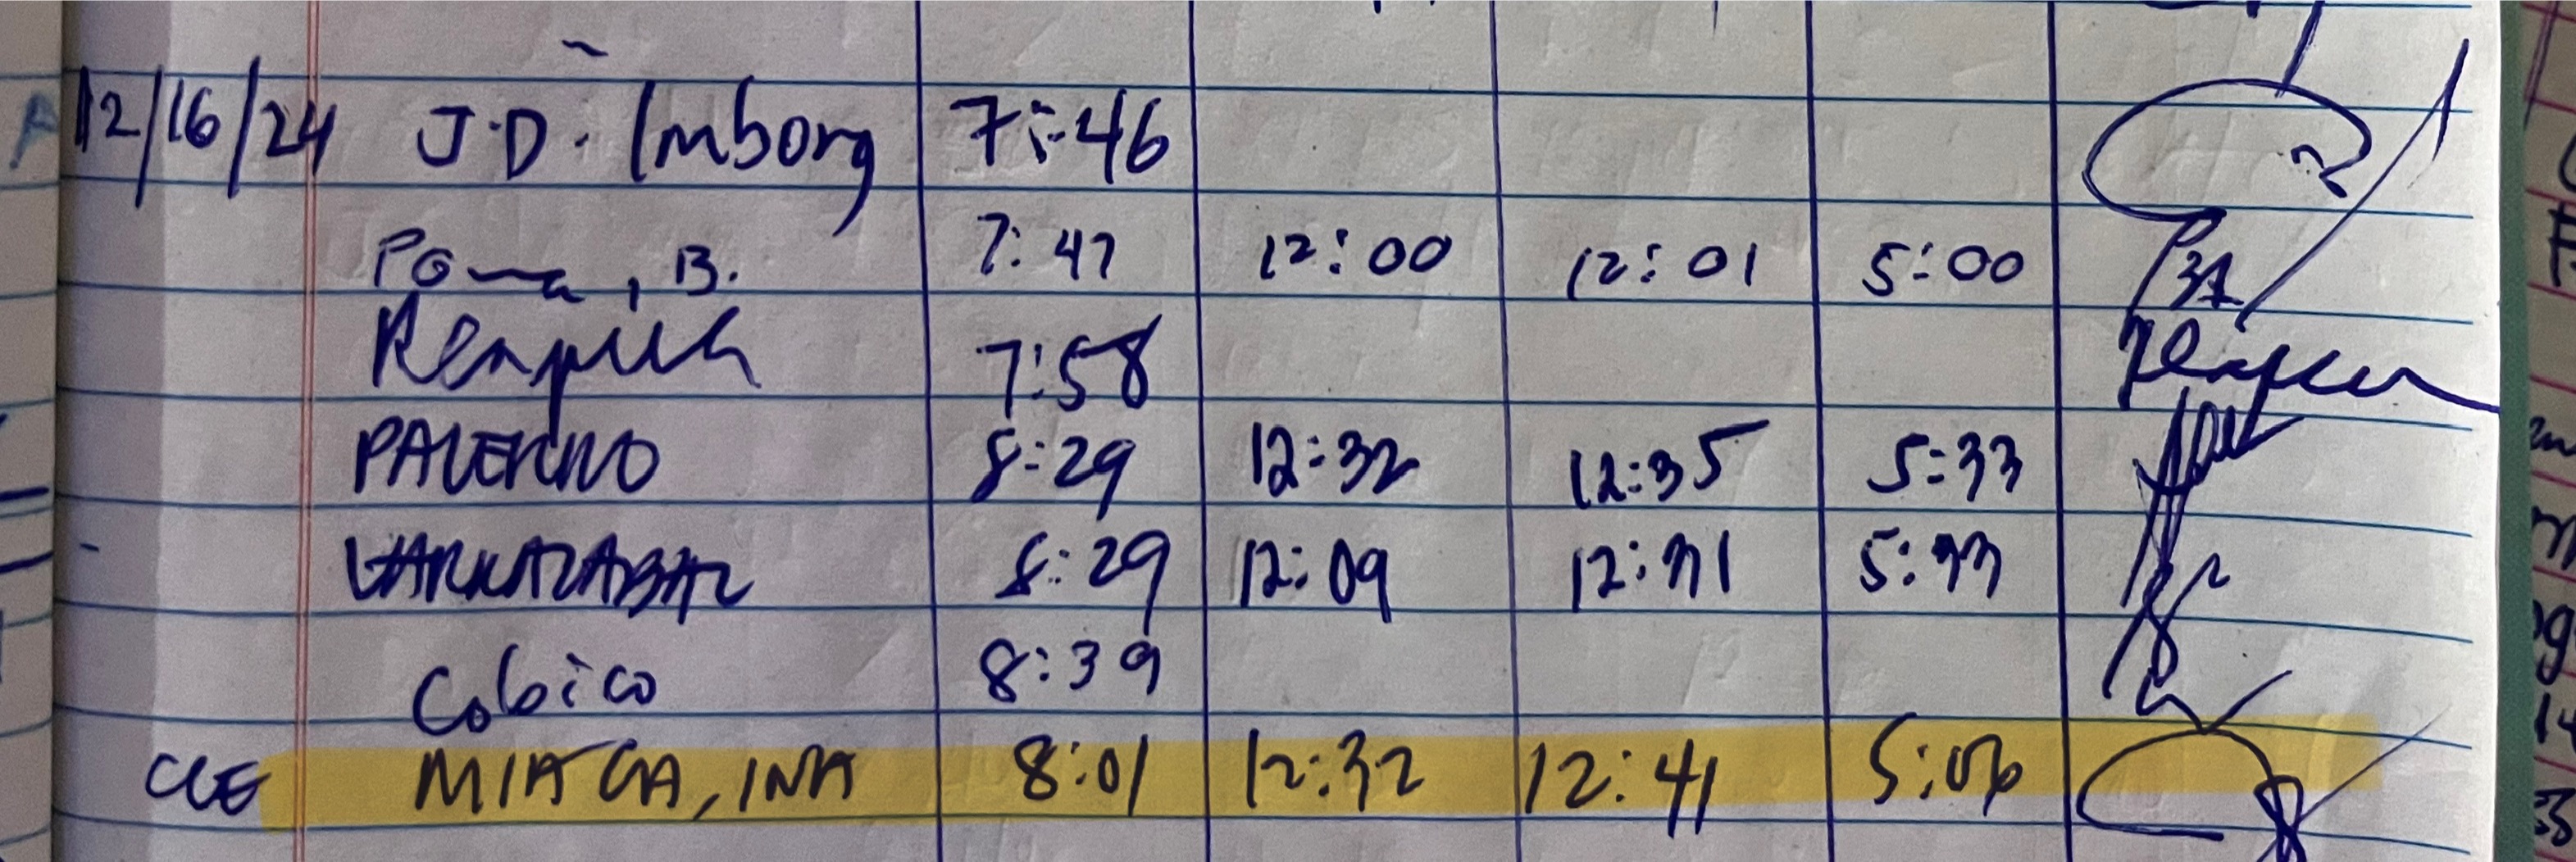 12/16/24 J.D. Imborg 7:46
Poma, B. 7:47 12:00 12:01 5:00
7:58
PALERMO 8:29 12:32 12:35 5:33
8:29 12:09 12:31 5:33
Cobico 8:39
CCE MIAGA, INA 8:01 12:32 12:41 5:06